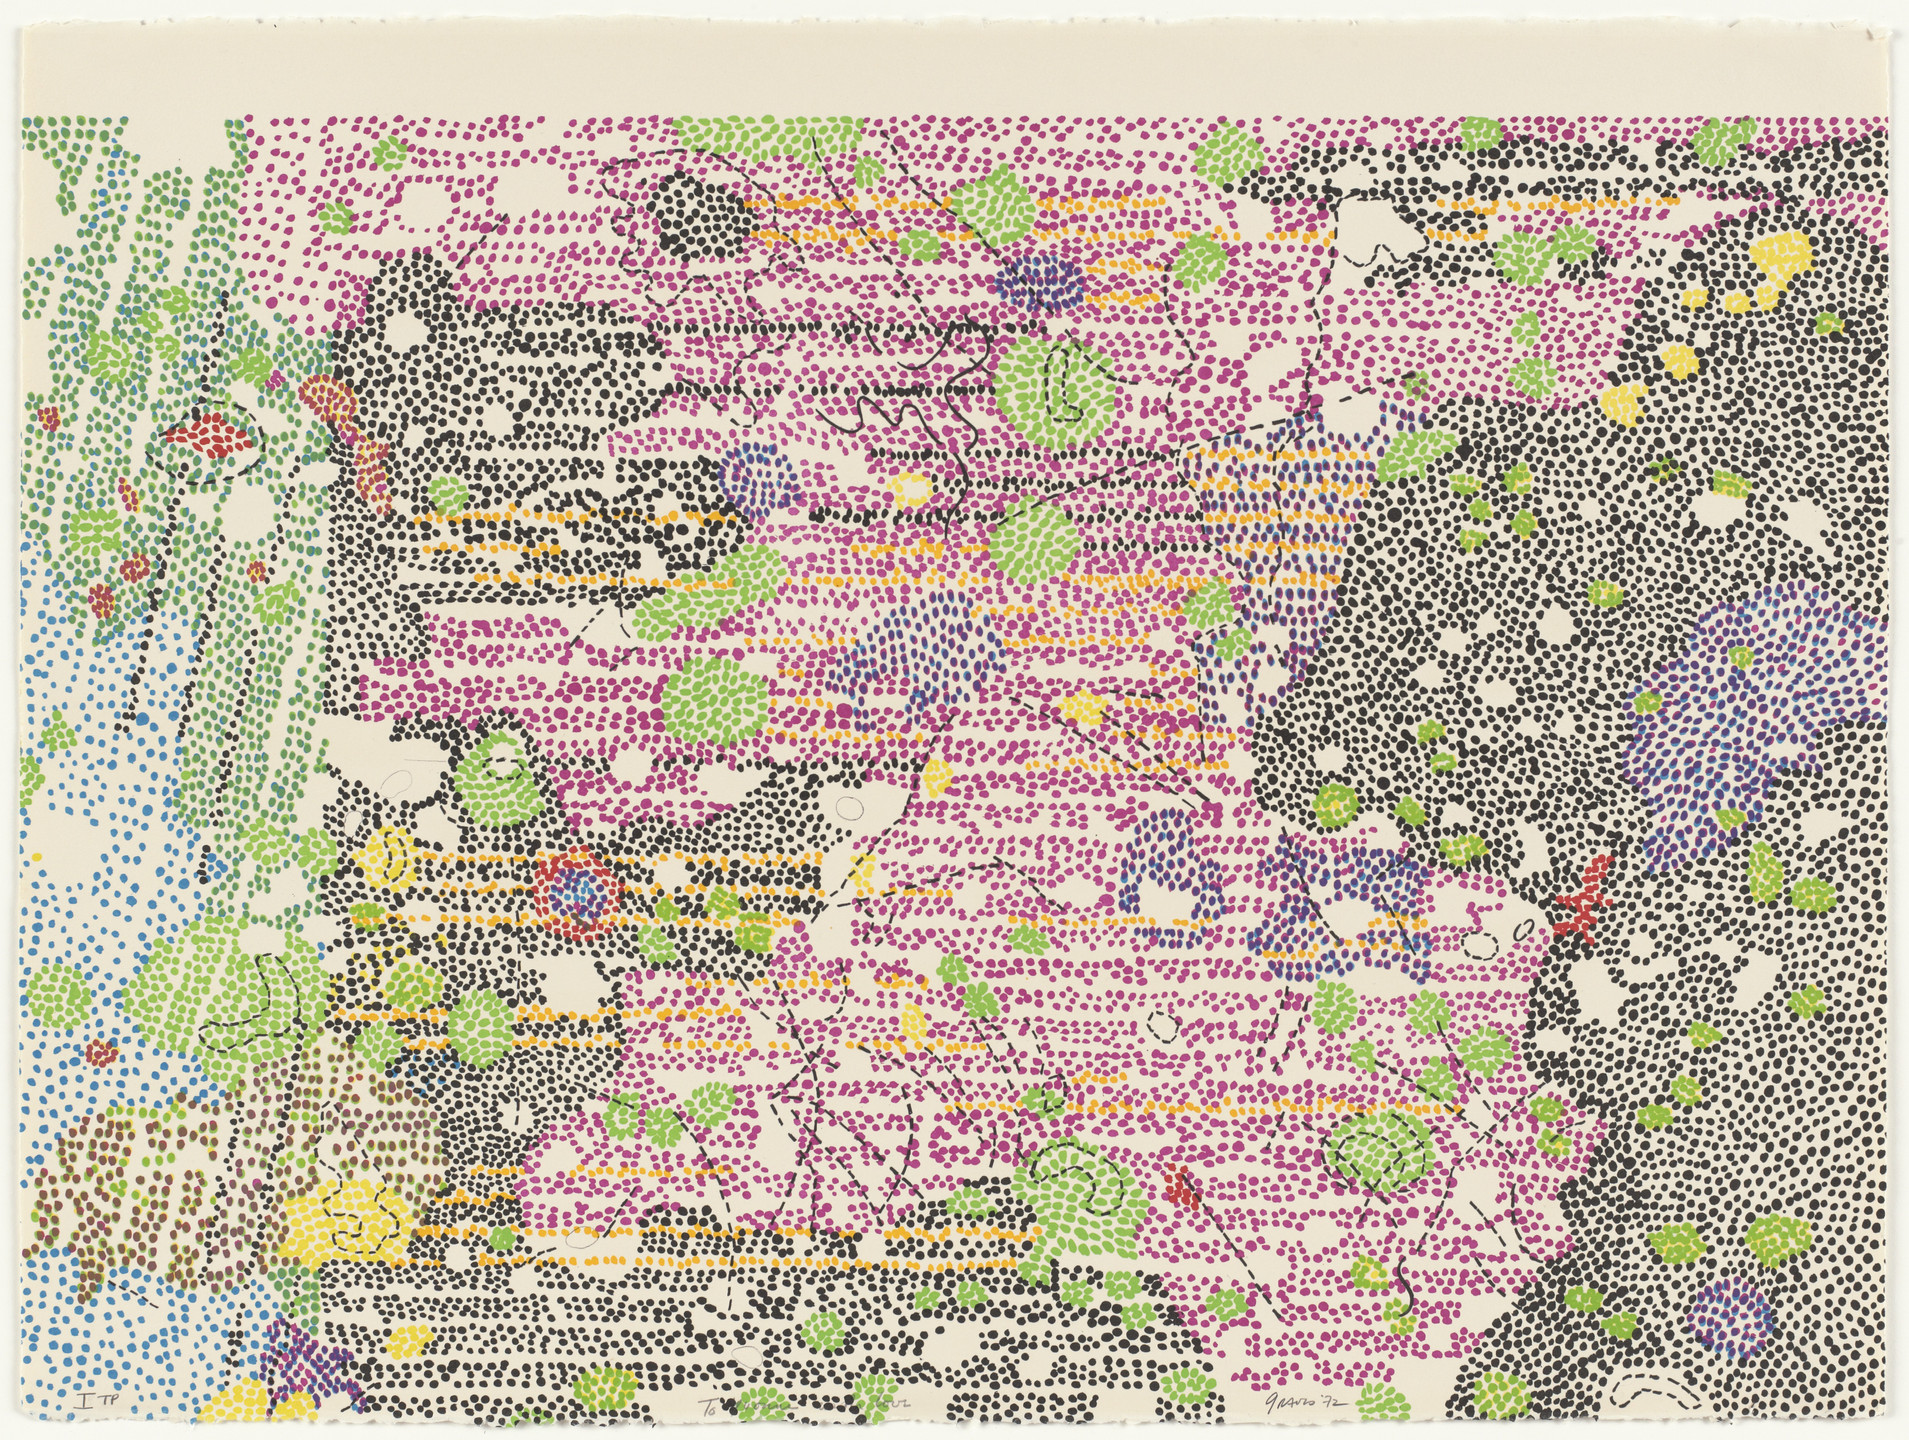 I TP
To love
Graves '72